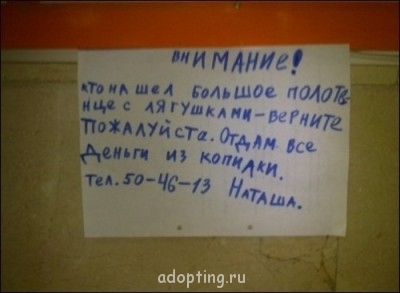 ВНИМАНИЕ!
КТО НА ШЕЛ БОЛЬШОЕ ПОЛОТЕ-
НЦЕ С ЛЯГУШКАМИ-ВЕРНИТЕ
ПОЖАЛУЙСТА. ОТДАМ ВСЕ
ДЕНЬГИ ИЗ КОПИЛКИ.
ТЕЛ. 50-46-13 НАТАША.
adopting.ru